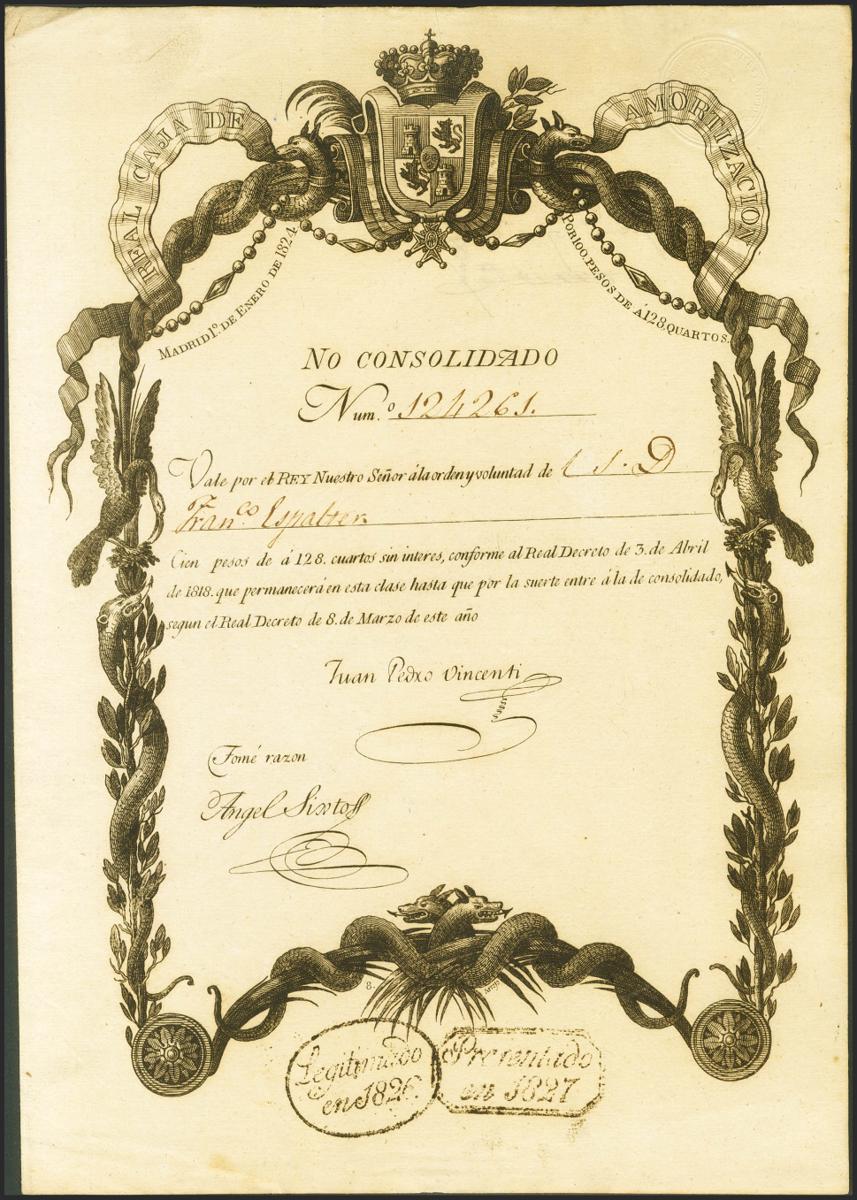 REAL CAJA DE
AMORTIZACION
MADRID 1º. DE ENERO DE 1824.
POR 100. PESOS DE Á 128. QUARTOS.
NO CONSOLIDADO
Num.º 124261.
Vale por el REY Nuestro Señor á la orden y voluntad de
D
Fran.co Espalter
Cien pesos de á 128. cuartos sin interes, conforme al Real Decreto de 3. de Abril
de 1818. que permanecerá en esta clase hasta que por la suerte entre á la de consolidado,
segun el Real Decreto de 8. de Marzo de este año
Juan Pedro Vincenti
Tomé razon
Angel Sixto
8.
Legitimado
en 1826.
Presentado
en 1827